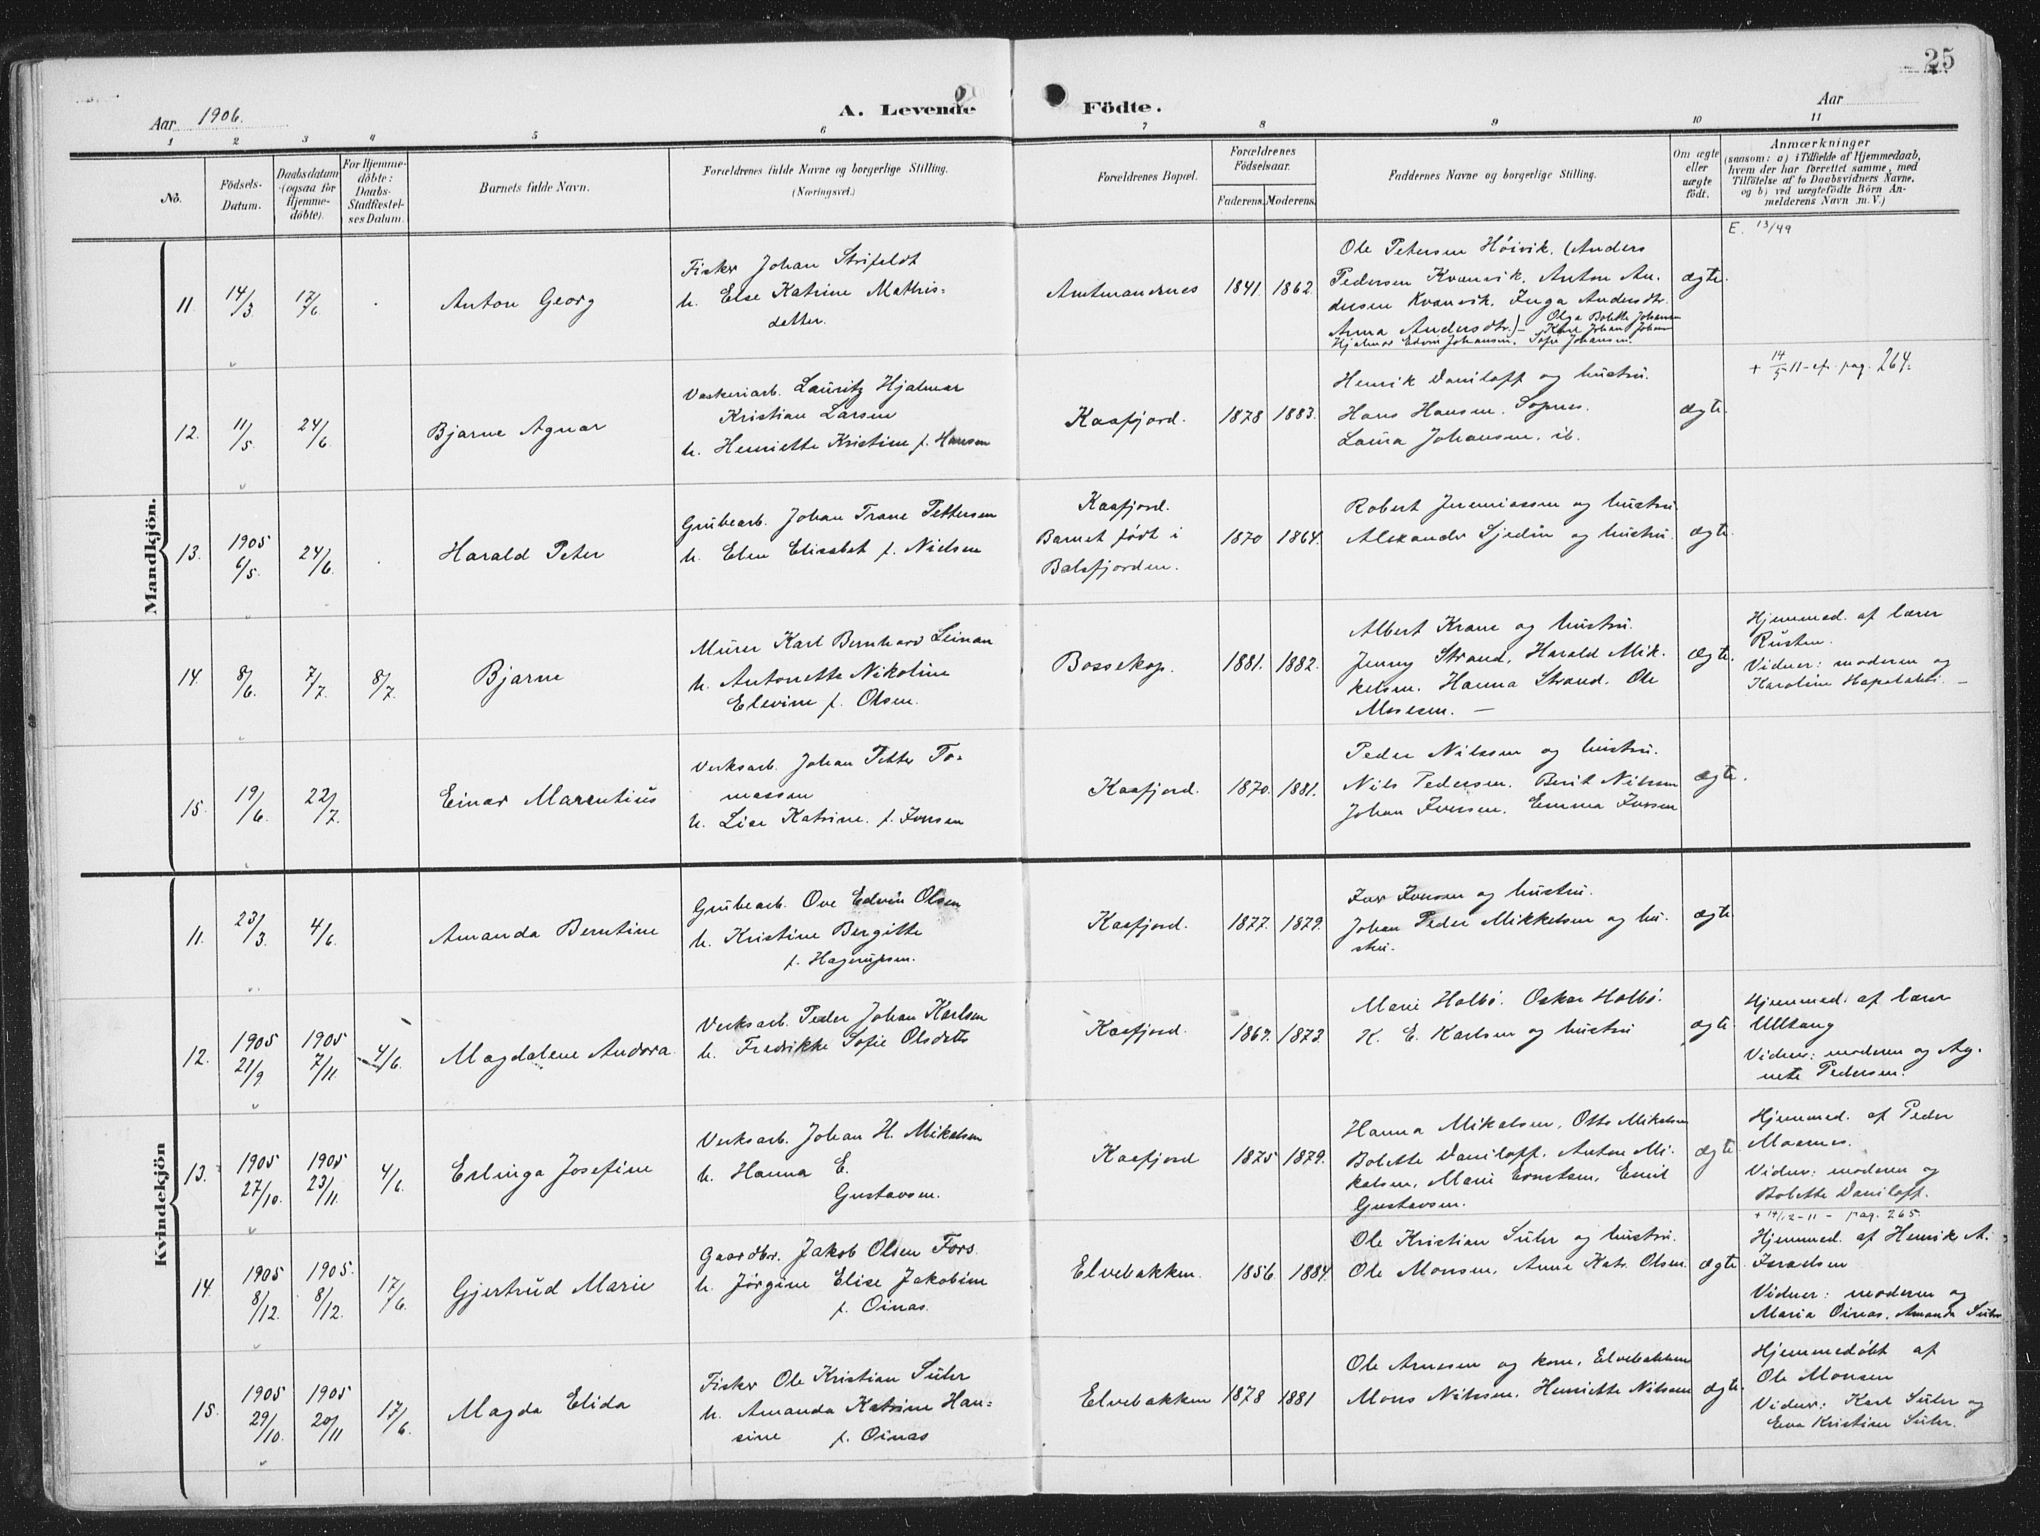 25
Aar 1906.
A. Levende Födte.
Aar
1 2 3 4 5 6 7 8 9 10 11
No.
Födsels-Datum.
Daabsdatum (ogsaa for Hjemme-döbte).
For Hjemme-döbte: Daabs-Stadfæstel-ses Datum.
Barnets fulde Navn.
Forældrenes fulde Navne og borgerlige Stilling. (Næringsvei.)
Forældrenes Bopæl.
Forældrenes Födselsaar.
Faderens. Moderens.
Faddernes Navne og borgerlige Stilling.
Om ægte eller uægte födt.
Anmærkninger
(saasom: a) i Tilfælde af Hjemmedaab,
hvem der har forrettet samme, med
Tilföielse af to Daabsvidners Navne,
og b) ved uægtefödte Börn An-
melderens Navn m. V.)
Mandkjön.
11. 14/3 17/6 Anton Georg
Fisker Johan Strifeldt
h. Else Katrine Mathis-
datter.
Amtmandsnes 1841. 1862.
Ole Petersen Höivik. (Anders
Pedersen Kvænvik. Anton An-
dersen Kvænvik. Inga Andersdtr.
Anna Andersdtr.) - Olga Bolette Johansen
Karl Johan Johans
Hjalmar Edvin Johansen. Sofie Johansen.
ægte.
E. 13/49
12. 11/5 24/6 Bjarne Agnar
Vaskeriarb. Lauritz Hjalmar
Kristian Larsen
h. Henriette Kristine f. Hansen
Kaafjord. 1878 1883.
Henrik Daniloff og hustru.
Hans Hansen. Sopnes.
Laura Johansen. ib.
ægte.
+ 14/5-11 - cfr. pag. 264.
13. 1905 6/5. 24/6. Harald Peter
Grubearb. Johan Trane Pettersen
h. Elen Elisabet f. Nielsen
Kaafjord.
Barnet födt i
Balsfjorden.
1870 1864.
Robert Jeremiassen og hustru
Alexander Sjedin og hustru.
ægte.
14. 8/6. 7/7. 8/7. Bjarne
Murer Karl Bernhard Leinan
h. Antonette Nikoline
Elevine f. Olsen.
Bossekop. 1881. 1882.
Albert Krane og hustru.
Jenny Strand. Harald Mik-
kelsen. Hanna Strand. Ole
Mosesen. —
ægte.
Hjemmed. af lærer
Rusten.
Vidner: moderen og
Karoline Hapalahti. —
15. 19/6. 22/7. Einar Marentius
Verksarb. Johan Petter To-
massen
h. Lise Katrine. f. Iversen
Kaafjord. 1870. 1881.
Peder Nilssen og hustru.
Nils Pedersen. Berit Nilssen
Johan Iversen. Emma Iversen
ægte.
Kvindekjön
11. 23/3. 4/6. Amanda Berntine
Grubearb. Ove Edvin Olsen
h. Kristine Bergitte
f. Hagerupsen.
Kaafjord. 1877. 1879.
Iver Iversen og hustru.
Johan Peder Mikkelsen og hu-
stru.
ægte.
12. 1905 21/9 1905 7/11 4/6. Magdalene Andora
Verksarb. Peder Johan Karlsen
h. Fredrikke Sofie Olsdatter
Kaafjord. 1867. 1873.
Marie Holbö. Oskar Holbö.
K. E. Karlsen og hustru
ægte.
Hjemmed. af lærer
Ulltang
Vidner: moderen og Ag-
nete Pedersen.
13. 1905 27/10. 1905 23/11. 4/6. Erlinga Josefine
Verksarb. Johan H. Mikalsen
h. Hanna E.
Gustavsen.
Kaafjord 1875 1879.
Hanna Mikalsen. Otto Mikalsen
Bolette Daniloff. Anton Mi-
kalsen. Marie Ernstsen. Emil
Gustavsen.
ægte.
Hjemmed. af Peder
Moamas.
Vidner: moderen og
Bolette Daniloff.
+ 14/12-11 - pag. 265.
14. 1905 8/12. 1905. 8/12. 17/6. Gjertrud Marie
Gaardbr. Jakob Olsen Fors.
h. Jörgine Elise Jakobine
f. Oinas.
Elvebakken. 1856. 1884.
Ole Kristian Suter og hustru.
Ole Monsen. Anne Katr. Olsen.
ægte.
Hjemmed. af Henrik A.
Israelsen
Vidner: moderen og
Maria Oinas. Amanda Suter
15. 1905 29/10. 1905 20/11 17/6. Magda Elida
Fisker Ole Kristian Suter
h. Amanda Katrine Han-
sine f. Oinas
Elvebakken 1878 1881
Ole Arnesen og kone. Elvebakken
Mons Nilssen. Henriette Nilssen
ægte.
Hjemmedöbt af
Ole Monsen
Vidner: Karl Suter og
Eva Kristine Suter.